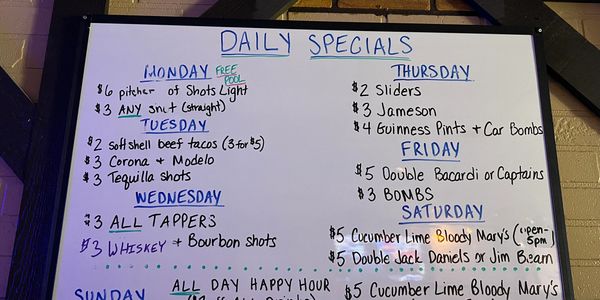 DAILY SPECIALS
MONDAY FREE POOL
$6 pitcher of Shots Light
$3 ANY shot (straight)
TUESDAY
$2 Soft shell beef tacos (3 for $5)
$3 Corona + Modelo
$3 Tequilla shots
WEDNESDAY
$3 ALL TAPPERS
$3 WHISKEY + Bourbon shots
THURSDAY
$2 Sliders
$3 Jameson
$4 Guinness Pints + Car Bombs
FRIDAY
$5 Double Bacardi or Captains
$3 BOMBS
SATURDAY
$5 Cucumber Lime Bloody Mary's (open-5pm)
$5 Double Jack Daniels or Jim Beam
SUNDAY
ALL DAY HAPPY HOUR
$5 Cucumber Lime Bloody Mary's